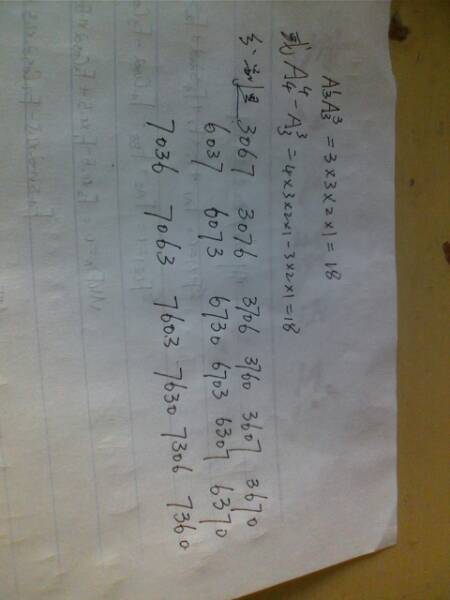 A₃¹A₃³ = 3×3×2×1=18
或 A₄⁴-A₃³ =4×3×2×1-3×2×1=18
分别是 3067 3076 3706 3760 3607 3670
6037 6073 6730 6703 6307 6370
7036 7063 7603 7630 7306 7360